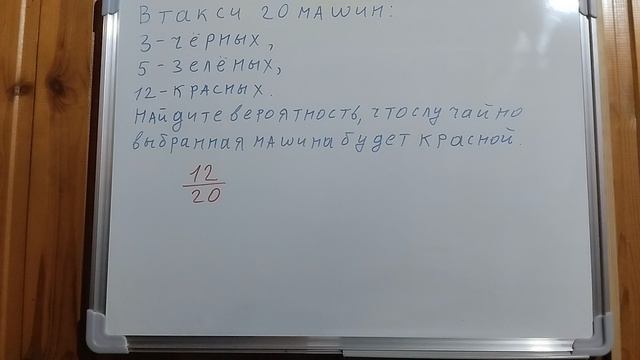 В такси 20 машин:
3-чёрных,
5-зелёных,
12-красных.
Найдите вероятность, что случайно
выбранная машина будет красной.
12
20